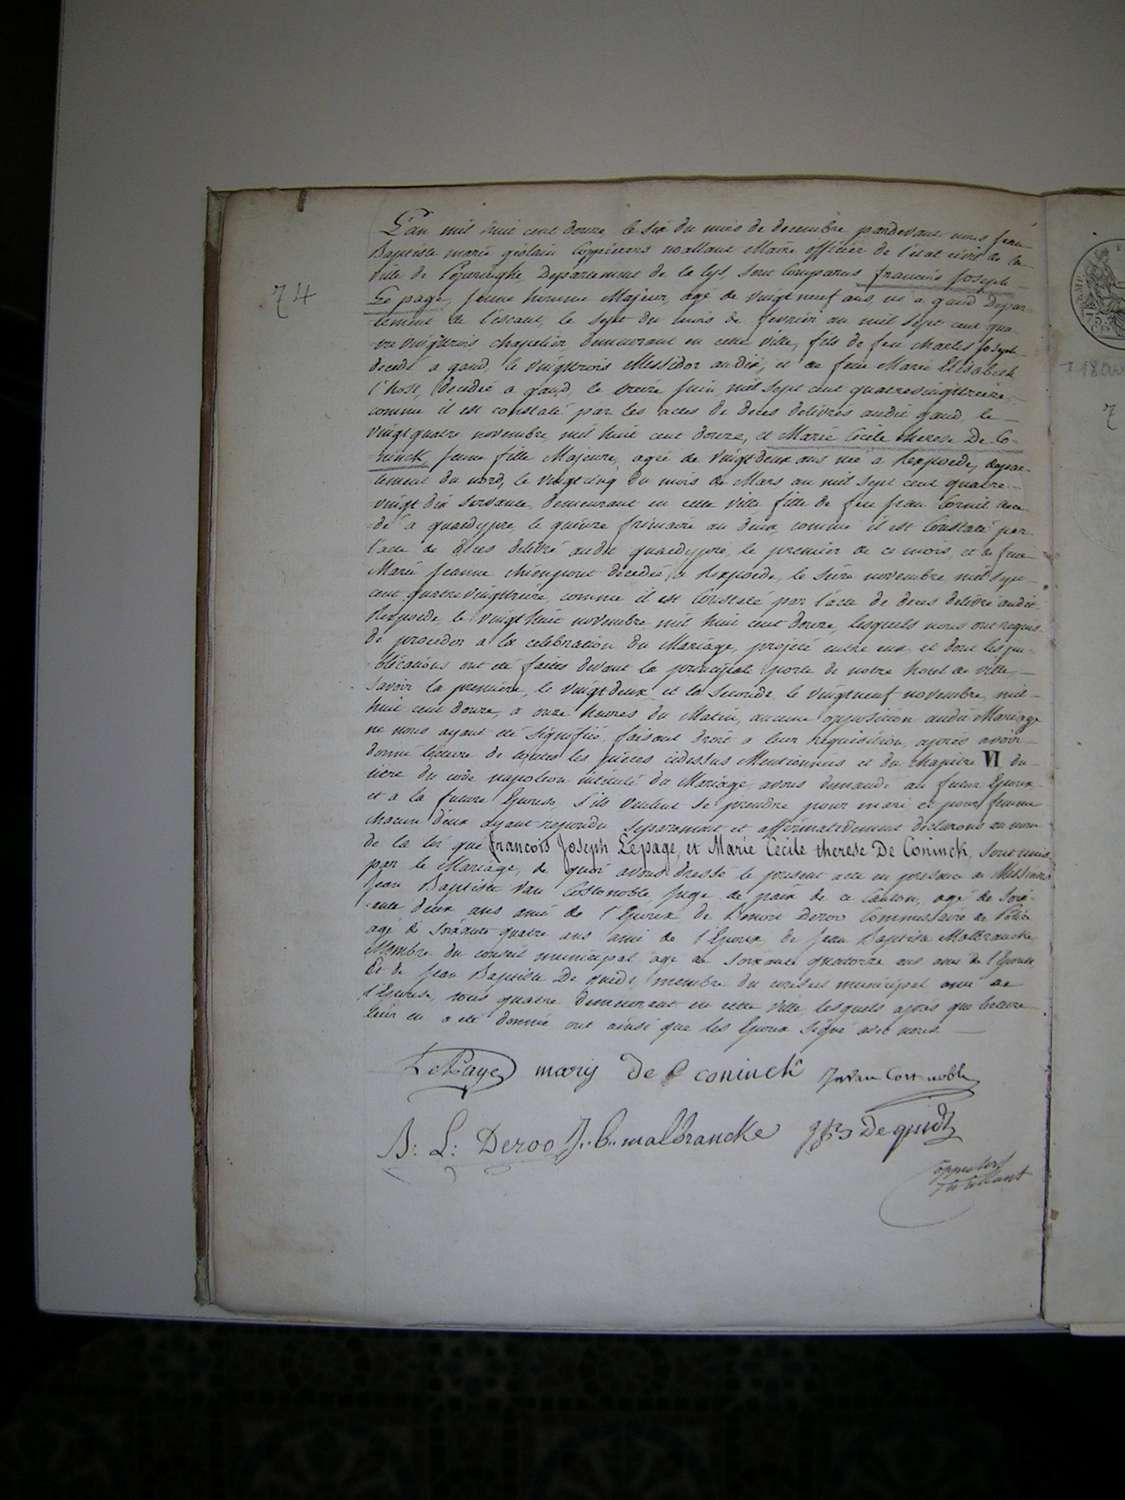 L'an mil huit cent douze le six du mois de decembre pardevant nous Jean
Baptiste marie gislain Coppieters wallant Maire officier de l'etat civil de la
ville de Poperinghe, Departement de la Lys, sont Comparus francois Joseph
74
Le page, jeune homme Majeur, agé de vingt neuf ans, né a gand Depar-
tement de l'escaut, le sept du mois de fevrier au mil sept cent qua-
tre vingt trois chapelier demeurant en cette ville, fils de feu charles Joseph
decedé a gand, le vingt trois Messidor an dix, et de feue Marie Elisabeth
l'host, decedée a gand, le treize juin mil sept cent quatre vingt treize,
comme il est constaté par les actes de deces delivrés audit gand le
vingt quatre novembre mil huit cent douze, et Marie Cecile therese De Co-
ninck jeune fille Majeure, agée de vingt deux ans née a Rexpoede, depar-
tement du nord, le vingt cinq du mois de Mars au mil sept cent quatre-
vingt dix servante, demeurant en cette ville fille de feu Jean Cornil dece-
dé a quaedypre, le quinze frimaire an deux, comme il est Constaté par
l'acte de deces delivré audit quaedypre, le premier de ce mois, et de feue
Marie Jeanne decedée a Rexpoede, le seize novembre mil sept
cent quatre vingt treize, comme il est Constaté par l'acte de deces delivré audit
Rexpoede, le vingt huit novembre mil huit cent douze, lesquels nous ont requis
de proceder a la celebration du Mariage, projetté entre eux, et dont les pu-
blications ont été faites devant la principale porte de notre hotel de ville,
savoir la premiere, le vingt deux et la seconde, le vingt neuf novembre, mil
huit cent douze, a onze heures du Matin, aucune opposition audit Mariage
ne nous ayant été signifiée, faisant droit a leur requisition, après avoir
donné lecture de toutes les pieces cidessus Mentionnées et du chapitre VI du
titre du code napoleon intitulé du Mariage, avons demandé au futur Epoux
et a la future Epouse, s'ils veulent se prendre pour mari et pour femme
chacun d'eux ayant repondu separement et affirmativement declarons au nom
de la loi que francois Joseph Lepage, et Marie Cecile therese De Coninck, sont unis
par le Mariage, de quoi avons dressé le present acte en presence de Messieurs
Jean Baptiste Van Costenoble juge de paix de ce Canton, agé de soix-
ante deux ans ami de l'Epoux de Deroo Commissaire de Police
agé de soixante quatre ans ami de l'Epoux de Jean Baptiste Malbrancke
Membre du conseil municipal agé de soixante quatorze ans ami de l'Epouse
Et de Jean Baptiste De quidt, membre du conseil municipal ami de
l'Epouse, tous quatre demeurant en cette ville, lesquels après que lecture
leur en a été donnée ont ainsi que les Epoux signé avec nous.
LePage marij de Coninck Costenoble
B: L: Deroo J. b. malbrancke De quidt
Coppieters
Wallant